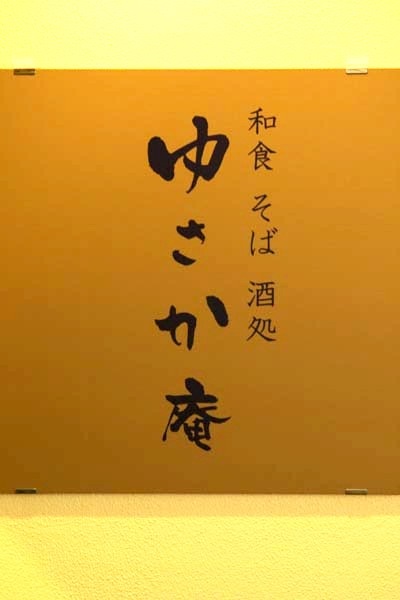 和食 そば 酒処
ゆさか庵